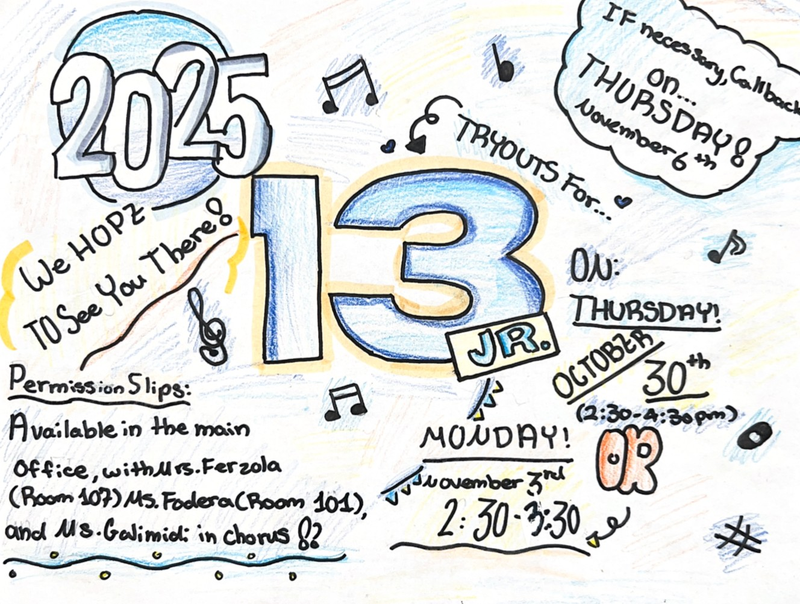 2025
IF necessary, Callback
on...
THURSDAY!
November 6th
TRYOUTS For...
13
JR.
We HOPE
TO See You There!
ON:
THURSDAY!
OCTOBER
30th
(2:30-4:30pm)
OR
MONDAY!
November 3rd
2:30-3:30
Permission Slips:
Available in the main
Office, with Mrs. Ferzola
(Room 107) Ms. Fodera (Room 101),
and Ms. Galimidi in chorus !?